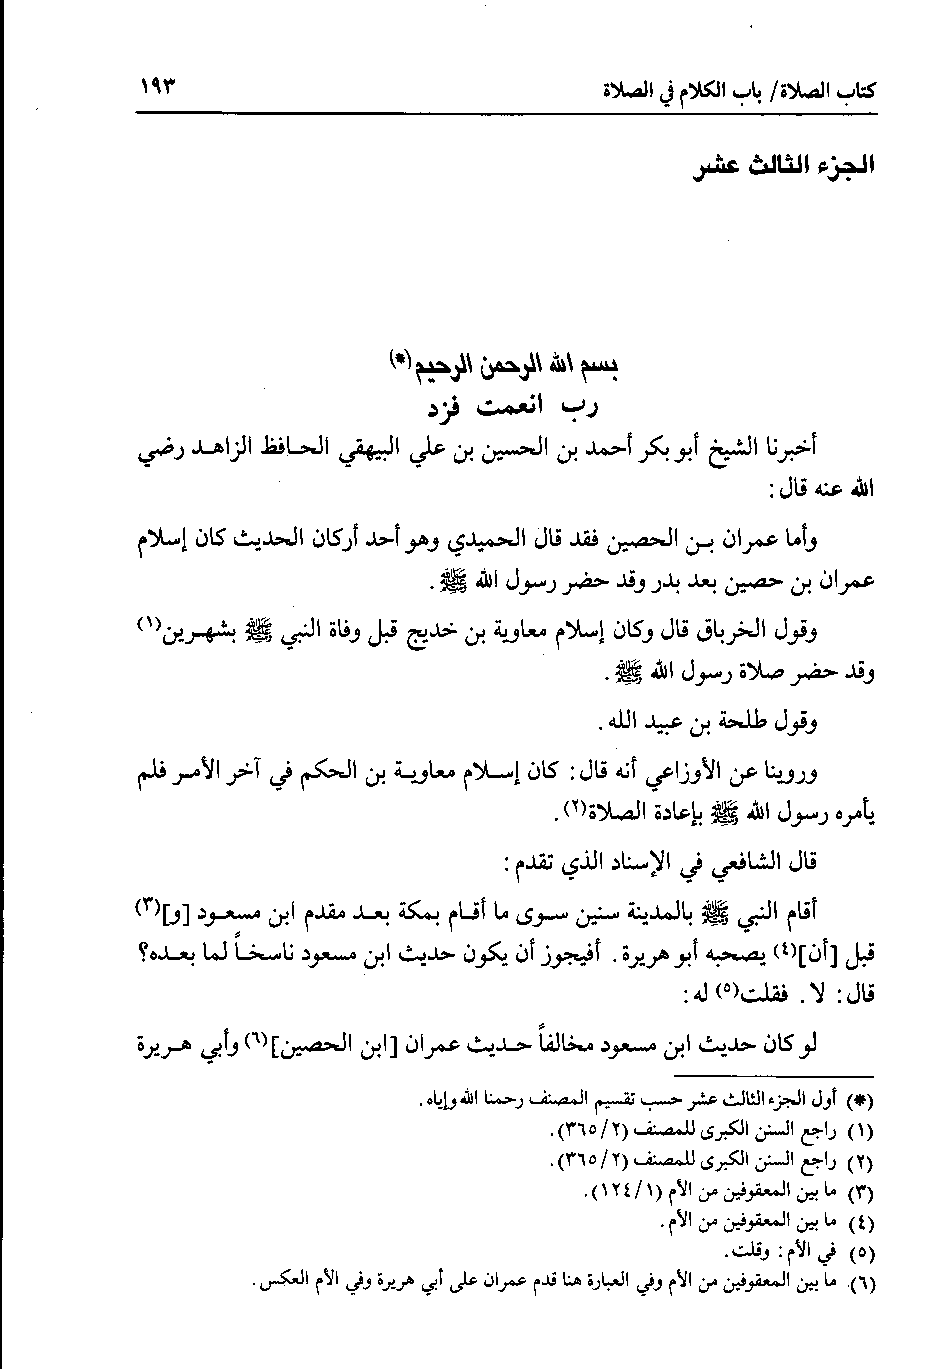 كتاب الصلاة/ باب الكلام في الصلاة ١٩٣
الجزء الثالث عشر
بسم الله الرحمن الرحيم(*)
رب انعمت فزد
أخبرنا الشيخ أبو بكر أحمد بن الحسين بن علي البيهقي الحافظ الزاهد رضي
الله عنه قال:
وأما عمران بن الحصين فقد قال الحميدي وهو أحد أركان الحديث كان إسلام
عمران بن حصين بعد بدر وقد حضر رسول الله ﷺ.
وقول الخرباق قال وكان إسلام معاوية بن خديج قبل وفاة النبي ﷺ بشهرين(١)
وقد حضر صلاة رسول الله ﷺ.
وقول طلحة بن عبيد الله.
وروينا عن الأوزاعي أنه قال: كان إسلام معاوية بن الحكم في آخر الأمر فلم
يأمره رسول الله ﷺ بإعادة الصلاة(٢).
قال الشافعي في الإسناد الذي تقدم:
أقام النبي ﷺ بالمدينة سنين سوى ما أقام بمكة بعد مقدم ابن مسعود [و](٣)
قبل [أن](٤) يصحبه أبو هريرة. أفيجوز أن يكون حديث ابن مسعود ناسخاً لما بعده؟
قال: لا. فقلت(٥) له:
لو كان حديث ابن مسعود مخالفاً حديث عمران [ابن الحصين](٦) وأبي هريرة
(*) أول الجزء الثالث عشر حسب تقسيم المصنف رحمنا الله وإياه.
(١) راجع السنن الكبرى للمصنف (٢/ ٣٦٥).
(٢) راجع السنن الكبرى للمصنف (٢/ ٣٦٥).
(٣) ما بين المعقوفين من الأم (١/ ١٢٤).
(٤) ما بين المعقوفين من الأم.
(٥) في الأم: وقلت.
(٦) ما بين المعقوفين من الأم وفي العبارة هنا قدم عمران على أبي هريرة وفي الأم العكس.